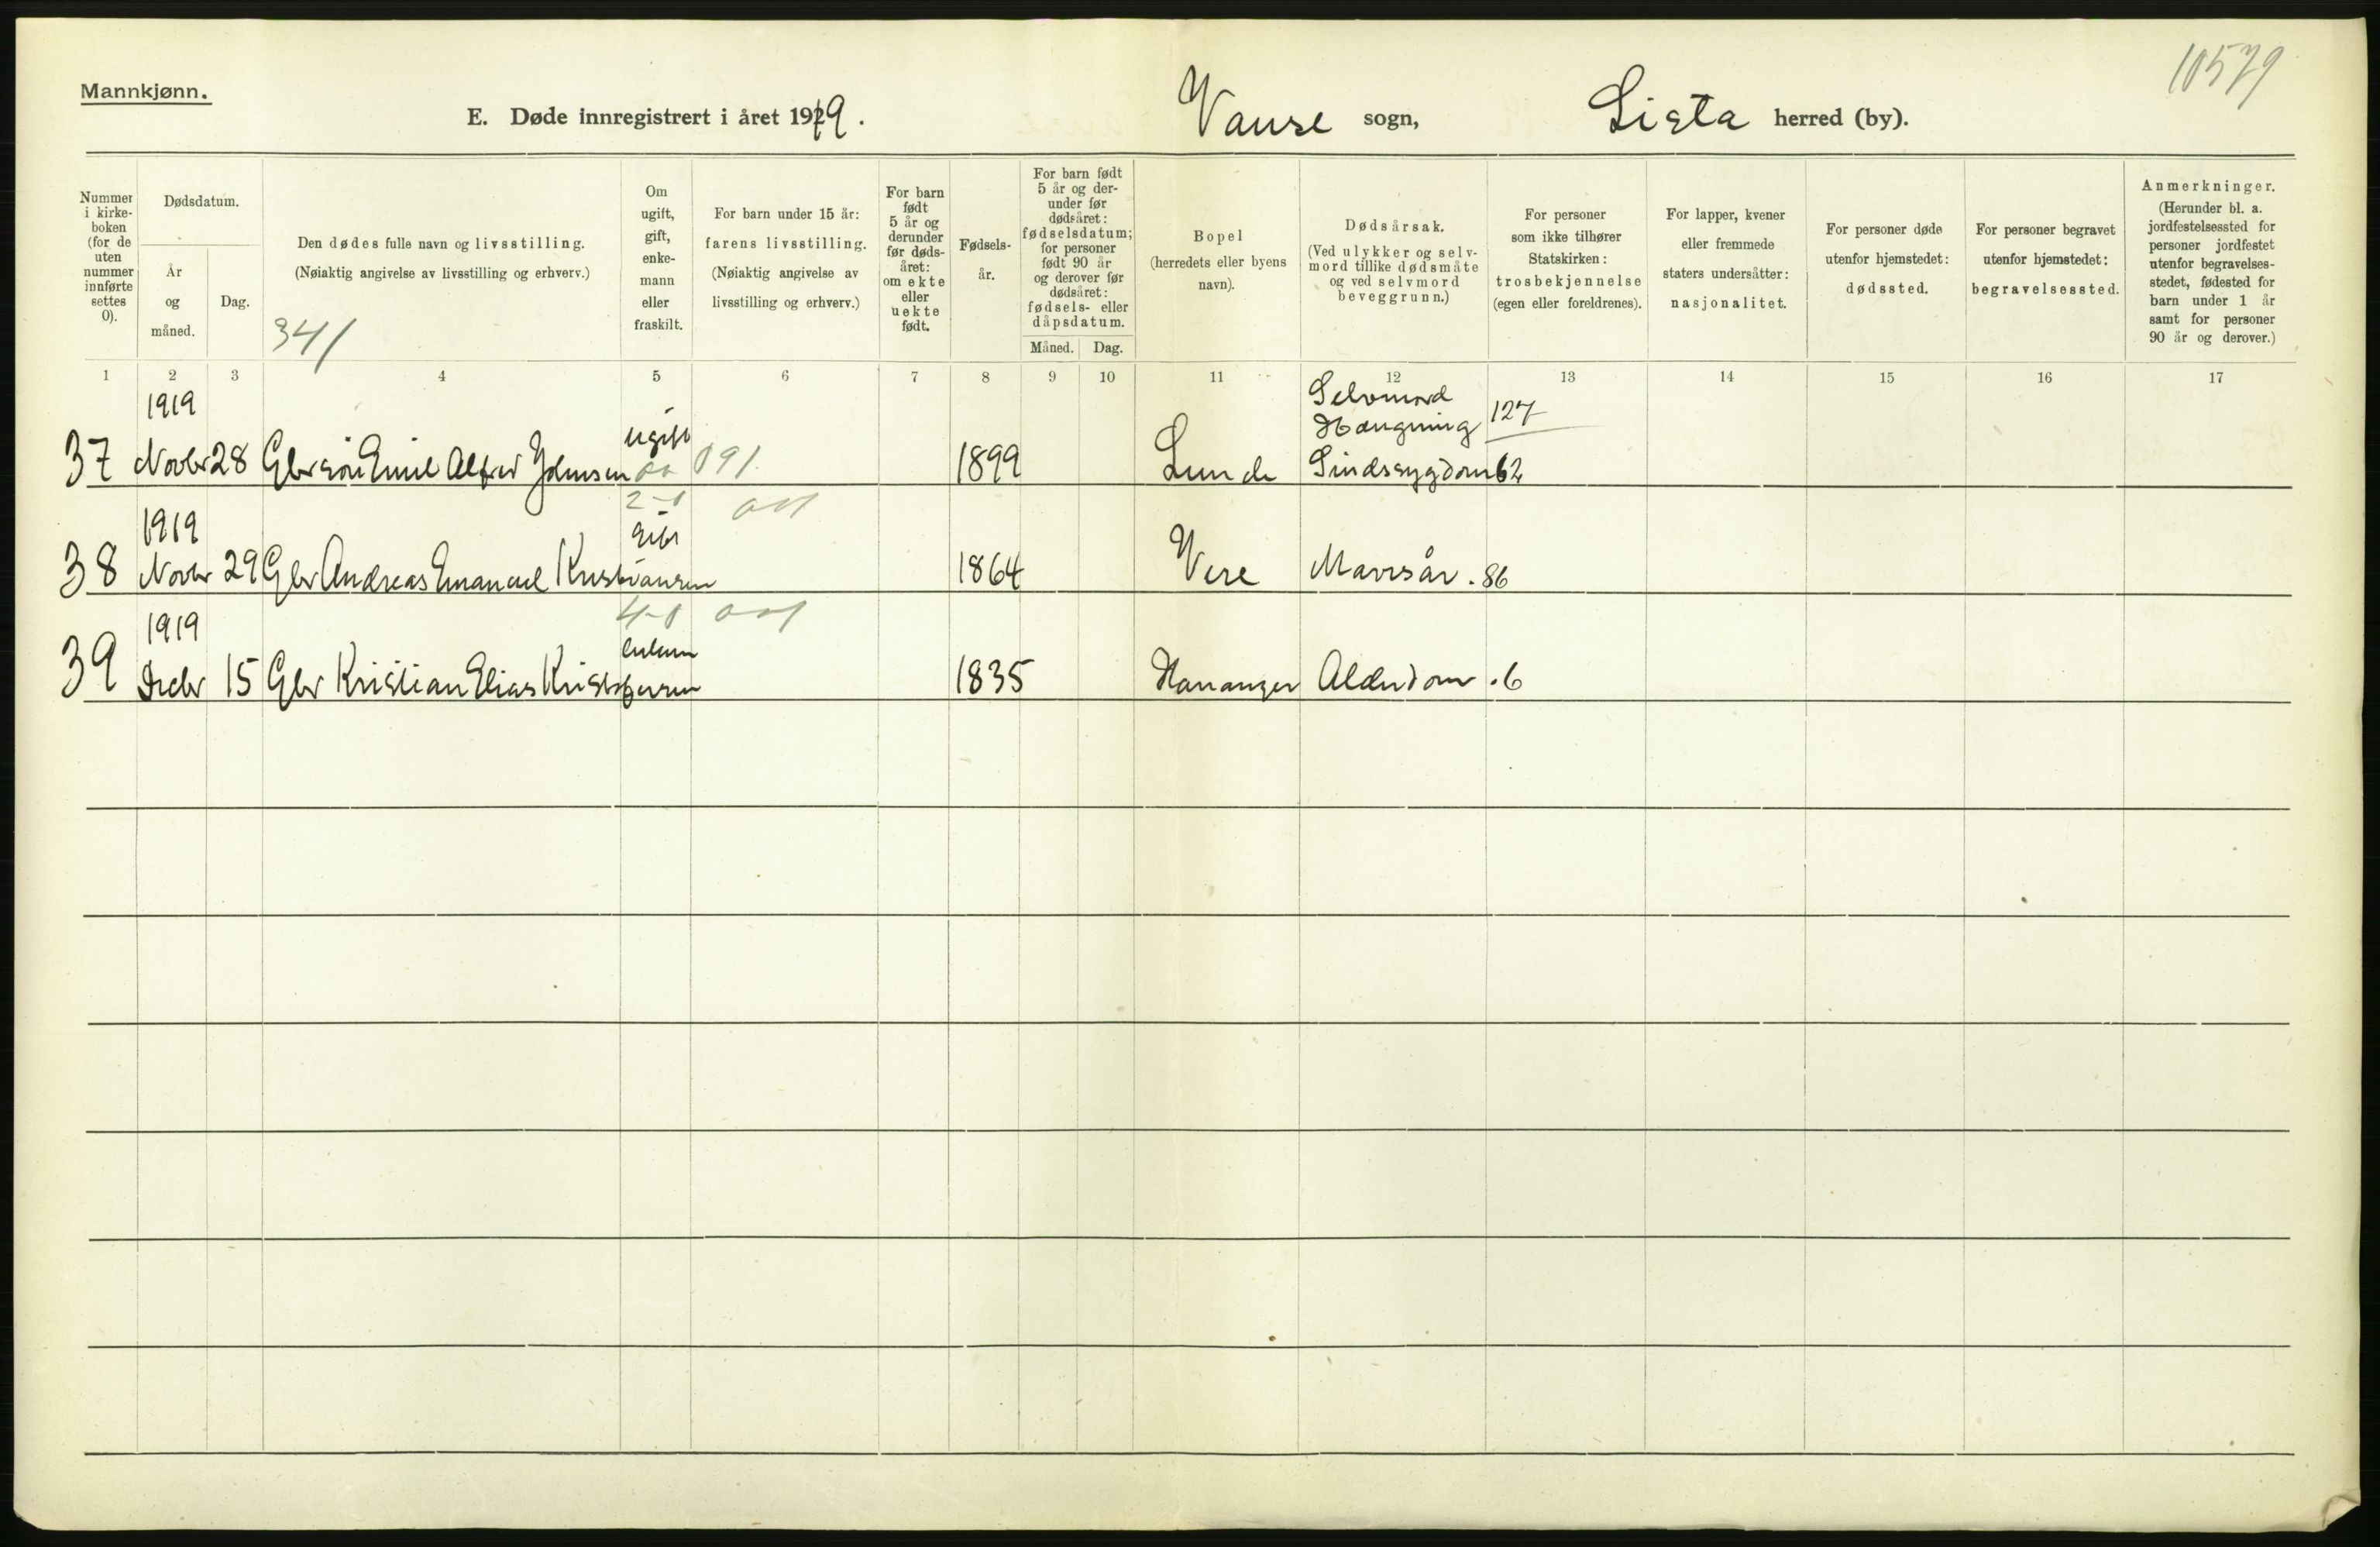 10579
Mannkjønn.
E. Døde innregistrert i året 1919.
Vanse sogn, Lista herred (by).
Nummer i kirke- boken (for de uten nummer innførte settes 0).
Dødsdatum.
År og måned.
Dag.
Den dødes fulle navn og livsstilling.
(Nøiaktig angivelse av livsstilling og erhverv.)
341
Om ugift, gift, enke- mann eller fraskilt.
For barn under 15 år: farens livsstilling. (Nøiaktig angivelse av livsstilling og erhverv.)
For barn født 5 år og derunder før døds- året: om ekte eller uekte født.
Fødsels- år.
For barn født 5 år og der- under før dødsåret: fødselsdatum; for personer født 90 år og derover før dødsåret: fødsels- eller dåpsdatum.
Måned. Dag.
Bopel (herredets eller byens navn).
Dødsårsak. (Ved ulykker og selv- mord tillike dødsmåte og ved selvmord beveggrunn.)
For personer som ikke tilhører Statskirken: trosbekjennelse (egen eller foreldrenes).
For lapper, kvener eller fremmede staters undersåtter: nasjonalitet.
For personer døde utenfor hjemstedet: dødssted.
For personer begravet utenfor hjemstedet: begravelsessted.
Anmerkninger. (Herunder bl. a. jordfestelsessted for personer jordfestet utenfor begravelses- stedet, fødested for barn under 1 år samt for personer 90 år og derover.)
1 2 3 4 5 6 7 8 9 10 11 12 13 14 15 16 17
1919
Selvmord
Hængning 127
37 Novbr 28 Gbr søn Emil Alfred Johnsen ugift 091 1899 Lunde Sindssygdom 62
1919
38 Novbr 29 Gbr Andreas Emanuel Kristiansen gift 1864 Vere Mavesår . 86
1919
39 Decbr 15 Gbr Kristian Elias Kristofersen enkem 1835 Hananger Alderdom . 6